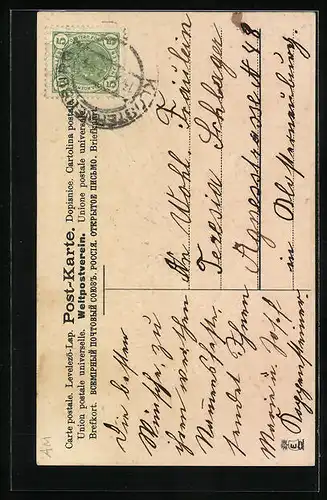 Carte postale. Levelező-Lap. Post-Karte. Dopisnice. Cartolina postale.
Union postale universelle. Weltpostverein. Unione postale universale.
Brefkort. ВСЕМІРНЫЙ ПОЧТОВЫЙ СОЮЗЪ. РОССІЯ. ОТКРЫТОЕ ПИСЬМО. Briefkaart.
5 5
KLOSTER
An Wohl. Fräulein
Teresia Schlager
Agnesstrasse # 48
in Klosterneuburg.
Die besten
Wünsche zu
Ihrem werthen
Namensfeste
sendet Ihnen
Marie u. Josef
AM